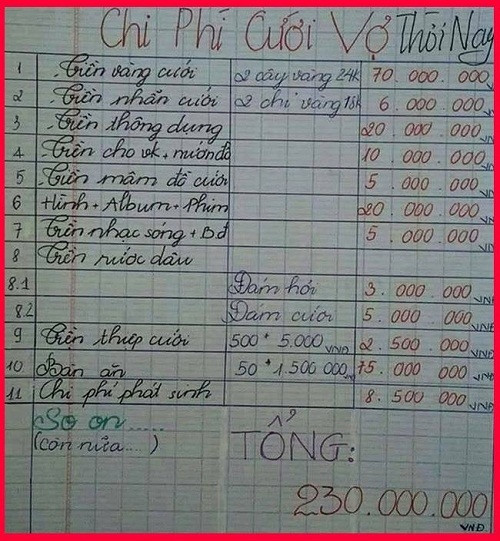 Chi Phí Cưới Vợ Thời Nay
1 Tiền vàng cưới 2 cây vàng 24k 70.000.000 VNĐ
2 Tiền nhẫn cưới 2 chỉ vàng 18k 6.000.000 VNĐ
3 Tiền thông dụng 20.000.000 VNĐ
4 Tiền cho vk + mướn đồ 10.000.000 VNĐ
5 Tiền mâm đồ cưới 5.000.000 VNĐ
6 Hình + Album + Phim 20.000.000 VNĐ
7 Tiền nhạc sống + Bđ 5.000.000 VNĐ
8 Tiền rước dâu
8.1 Đám hỏi 3.000.000 VNĐ
8.2 Đám cưới 5.000.000 VNĐ
9 Tiền thiệp cưới 500 * 5.000 VNĐ 2.500.000 VNĐ
10 Bàn ăn 50 * 1.500.000 VNĐ 75.000.000 VNĐ
11 Chi phí phát sinh 8.500.000 VNĐ
So on.....
(còn nữa....) TỔNG:
230.000.000
VNĐ.